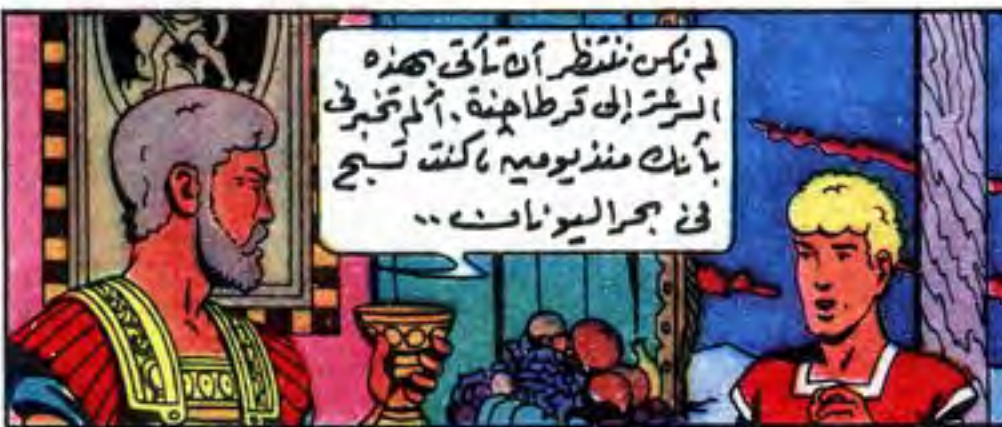 لم نكن ننتظر أن تأتى بهذه
السرعة إلى قرطاجنة. ألم تخبرنى
بأنك منذ يومين، كنت تسبح
فى بحر اليونان ..